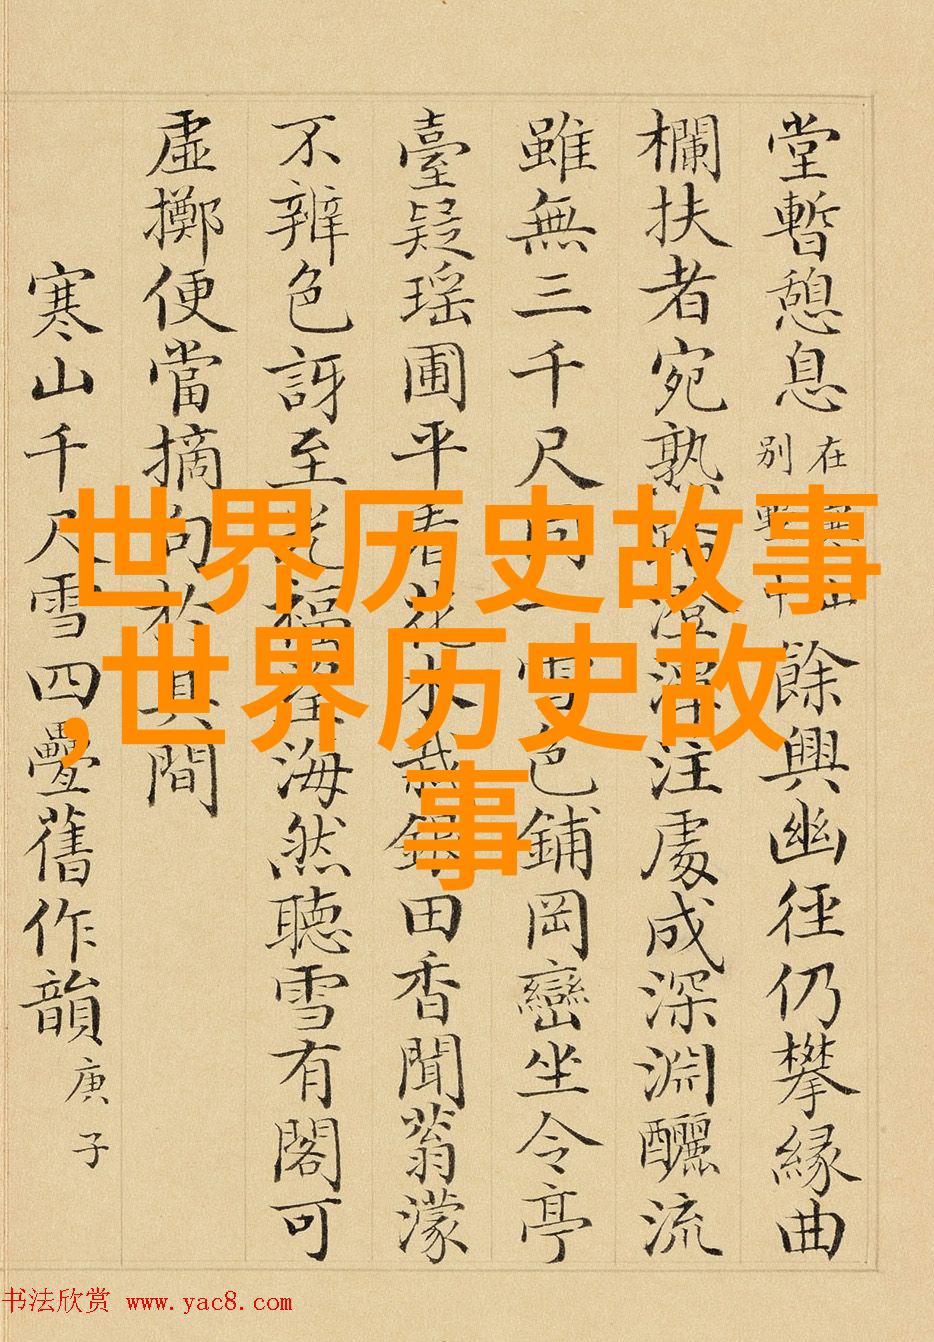 堂暫憩息
在
別
餘興幽徑仍攀緣曲
欄扶者宛熟路澄注處成深淵釃流
雖無三千尺同一雪色鋪岡巒坐令亭
臺疑瑤圃平看花木栽銀田香聞蓊濛
不辨色訝至光福海然聽雪有閣可
虛擲便當摘句於其間
寒山千尺雪四疊舊作韻
庚子
世界历史故事
,世界历史故
事
书法欣赏 www.yac8.com